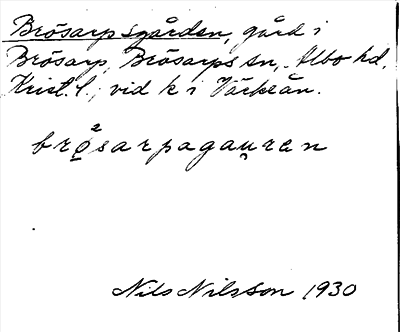 Brösarpsgården, gård i
Brösarp, Brösarps sn, Albo hd,
Krist. l., vid k i Verkeån.
brø̠²sarpagau̯ran
Nils Nilsson 1930